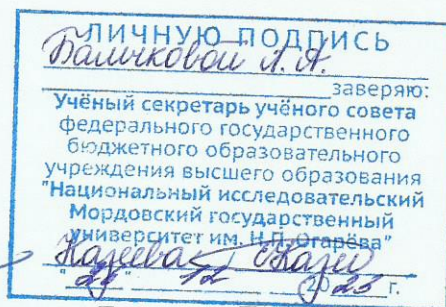 ЛИЧНУЮ ПОДПИСЬ
Балыковой Л. А.
заверяю:
Учёный секретарь учёного совета
федерального государственного
бюджетного образовательного
учреждения высшего образования
"Национальный исследовательский
Мордовский государственный
университет им. Н.П. Огарёва"
" " 12 2023 г.